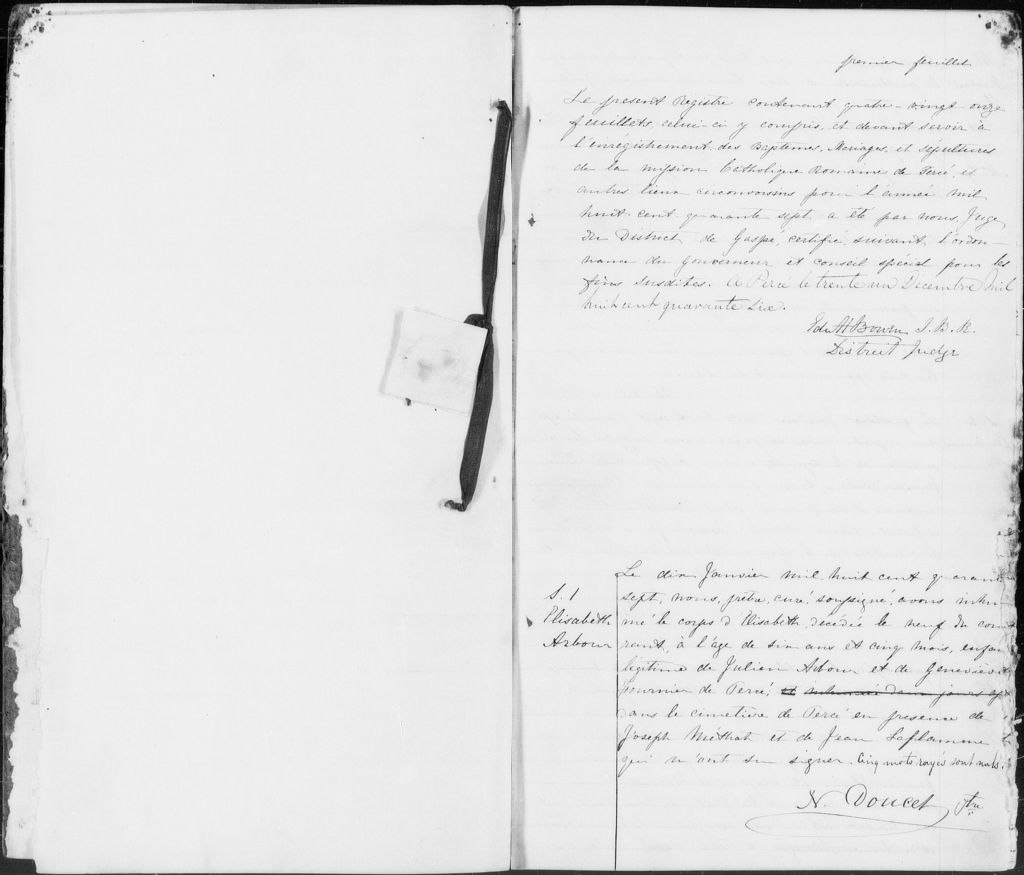 premier feuillet
Le present Registre contenant quatre-vingt onze
feuillets, celui-ci y compris, et devant servir à
l'enrégistrement des Baptêmes, Mariages, et sépultures
de la mission Catholique Romaine de Percé, et
autres lieux circonvoisins pour l'année mil
huit-cent quarante sept a été par nous, Juge
du District de Gaspé, certifié suivant l'ordon-
nance du gouverneur et conseil spécial pour les
fins susdites. A Percé le trente un Decembre mil
huit cent quarante six.
Edw H Bowen J. B. R.
District Judge
S. 1
Elisabeth
Arbour
Le dix Janvier mil huit cent quarante
sept, nous, prêtre, curé, soussigné, avons inhu
mé le corps d'Elisabeth, décédée le neuf du cou
rant, à l'âge de six ans et cinq mois, enfan
légitime de Julien Arbour et de Geneviève
Fournier de Percé, et inhumé deux jours
dans le cimetière de Percé en presence de
Joseph Méthot et de Jean Laflamme
qui n'ont su signer. Cinq mots rayés sont nuls.
N. Doucet Ptre